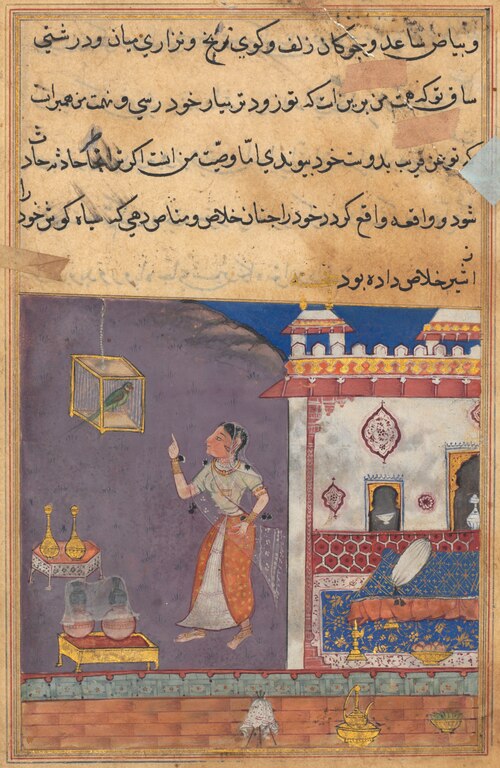 و بیاض ساعد و چوکان زلف و کوی زنخ و نزاری میان و درشتی
ساق تو که همت من برین است که تو زود تر بیار خود رسی و نهمت من همبران
که تو عن قریب بدوست خود پیوندی اما وصیت من انست اکر ترا حادثه حادث
شود و واقعه واقع کردد خود را چنان خلاص و مناص دهی که سیاه کوش خود را
از شیر خلاص داده بود